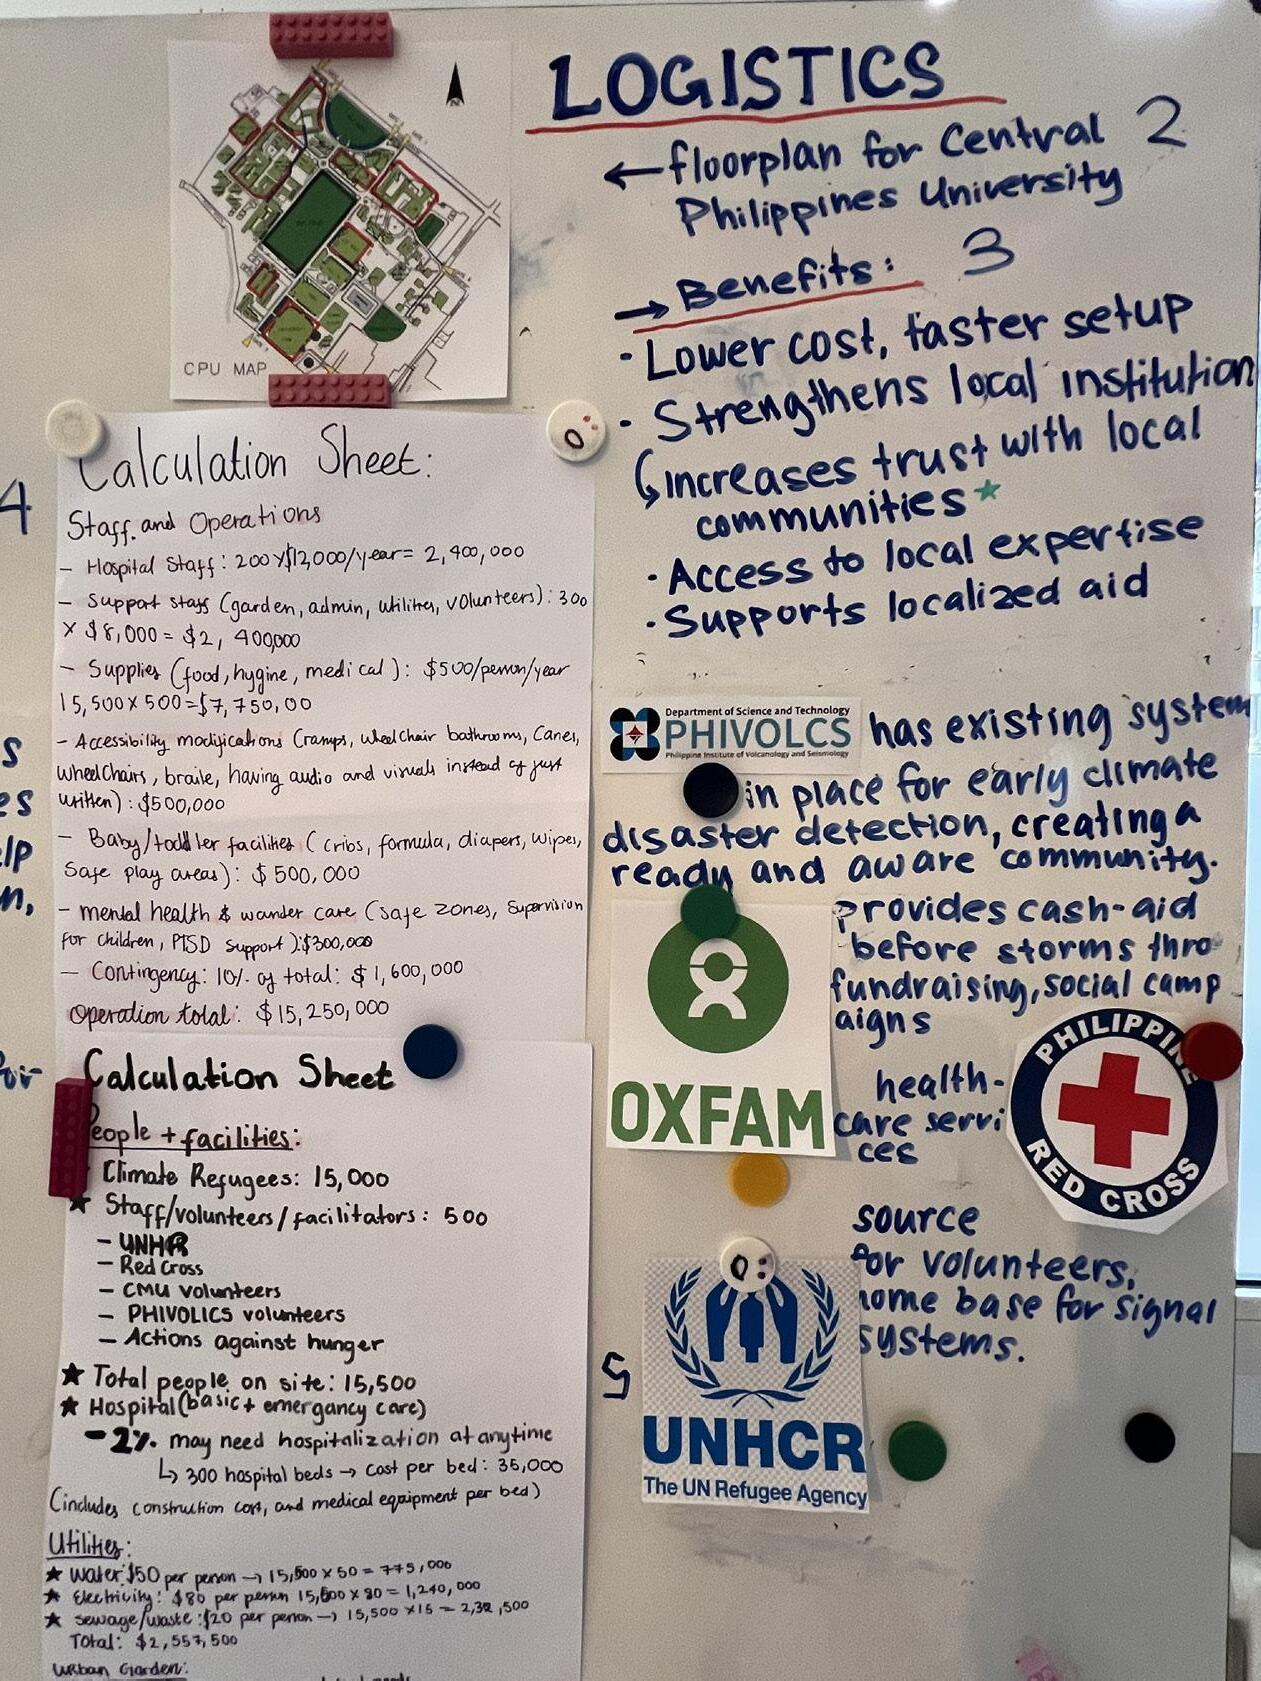 LOGISTICS
← floorplan for Central 2
Philippines University
→ Benefits: 3
· Lower cost, faster setup
· Strengthens local institution
↳ increases trust with local
communities ★
· Access to local expertise
· Supports localized aid
N
CPU MAP
4
Calculation Sheet:
Staff and Operations
– Hospital Staff: 200 x $12,000/year = 2,400,000
– Support staff (garden, admin, utilities, volunteers): 300
x $8,000 = $2, 400,000
– Supplies (food, hygine, medical): $500/person/year
15,500 x 500 = $7,750,00
– Accessibility modifications (ramps, wheelchair bathrooms, Canes,
wheelchairs, braile, having audio and visuals instead of just
written): $500,000
– Baby/toddler facilities (cribs, formula, diapers, wipes,
safe play areas): $500,000
– mental health & wander care (safe zones, supervision
for children, PTSD support): $300,000
– Contingency: 10% of total: $1,600,000
Operation total: $15,250,000
Calculation Sheet
eople + facilities:
Climate Refugees: 15,000
★ Staff/volunteers/facilitators: 500
– UNHR
– Red Cross
– CMU volunteers
– PHIVOLICS volunteers
– Actions against hunger
★ Total people on site: 15,500
★ Hospital (basic + emergancy care)
– 2% may need hospitalization at anytime
↳ 300 hospital beds → cost per bed: 35,000
(includes construction cost, and medical equipment per bed)
Utilities:
★ Water: $50 per person → 15,500 x 50 = 775,000
★ Electricity: $80 per person 15,500 x 80 = 1,240,000
★ Sewage/waste: $20 per person → 15,500 x 15 = 2,32,500
Total: $2,557,500
Urban Garden:
Department of Science and Technology
PHIVOLCS
Philippine Institute of Volcanology and Seismology
has existing system
in place for early climate
disaster detection, creating a
ready and aware community.
OXFAM
provides cash-aid
before storms thro
fundraising, social camp
aigns
health-
care servi
ces
PHILIPPINE
RED CROSS
source
for volunteers,
home base for signal
systems.
5
UNHCR
The UN Refugee Agency
s
es
lp
n,
for